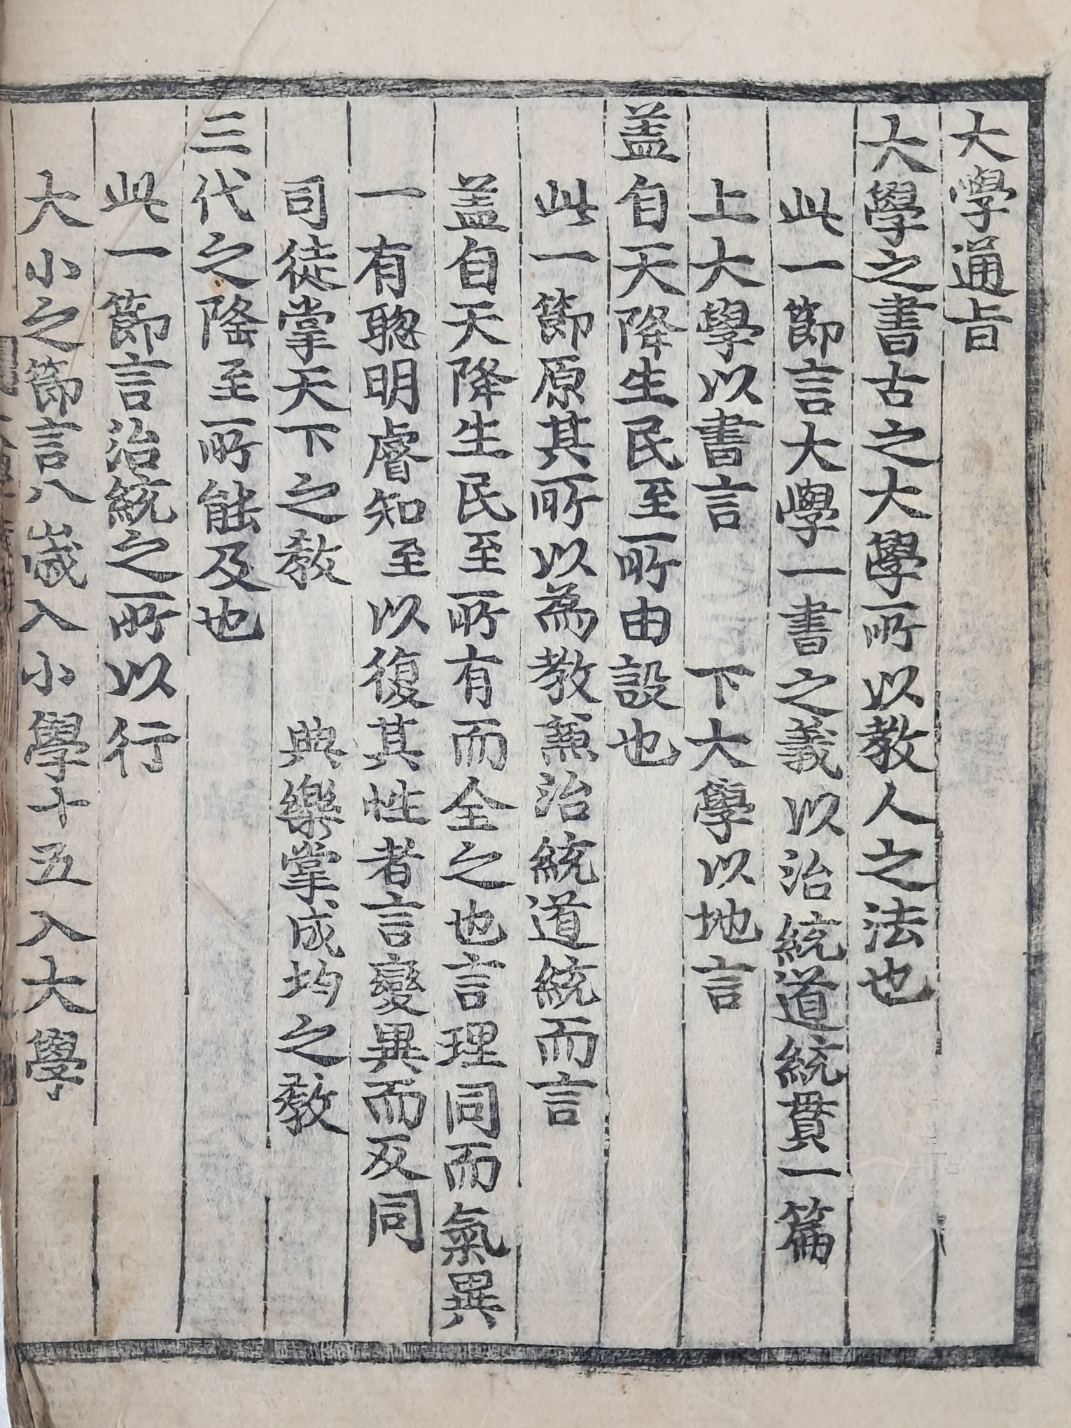 大學通旨
大學之書古之大學所以教人之法也
此一節言大學一書之義以治統道統貫一篇
上大學以書言　下大學以地言
盖自天降生民至所由設也
此一節原其所以為教兼治統道統而言
盖自天降生民至所有而全之也言理同而氣異
一有聦明睿知至以復其性者言變異而反同
司徒掌天下之教　典樂掌成均之教
三代之隆至所能及也
此一節言治統之所以行
大小之節言八歲入小學十五入大學